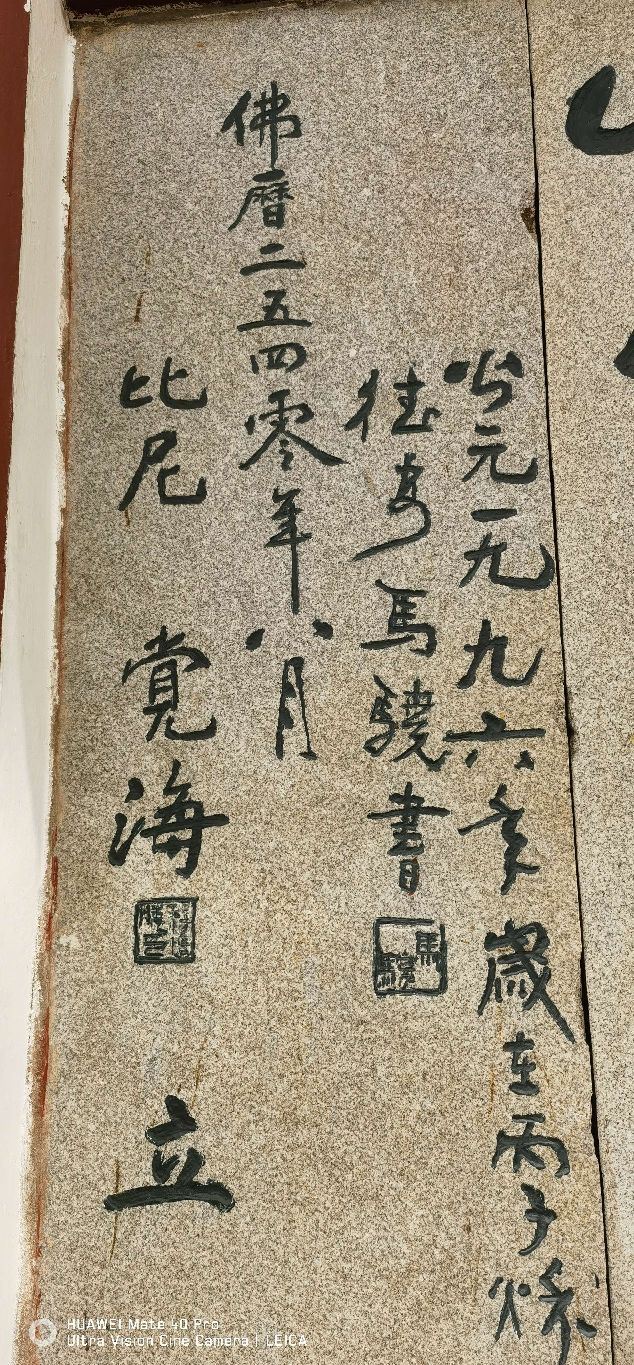 公元一九九六年歲在丙子秌
馬驍書
馬驍
佛暦二五四零年八月
比尼 覚海 立
HUAWEI Mate 40 Pro
Ultra Vision Cine Camera | LEICA